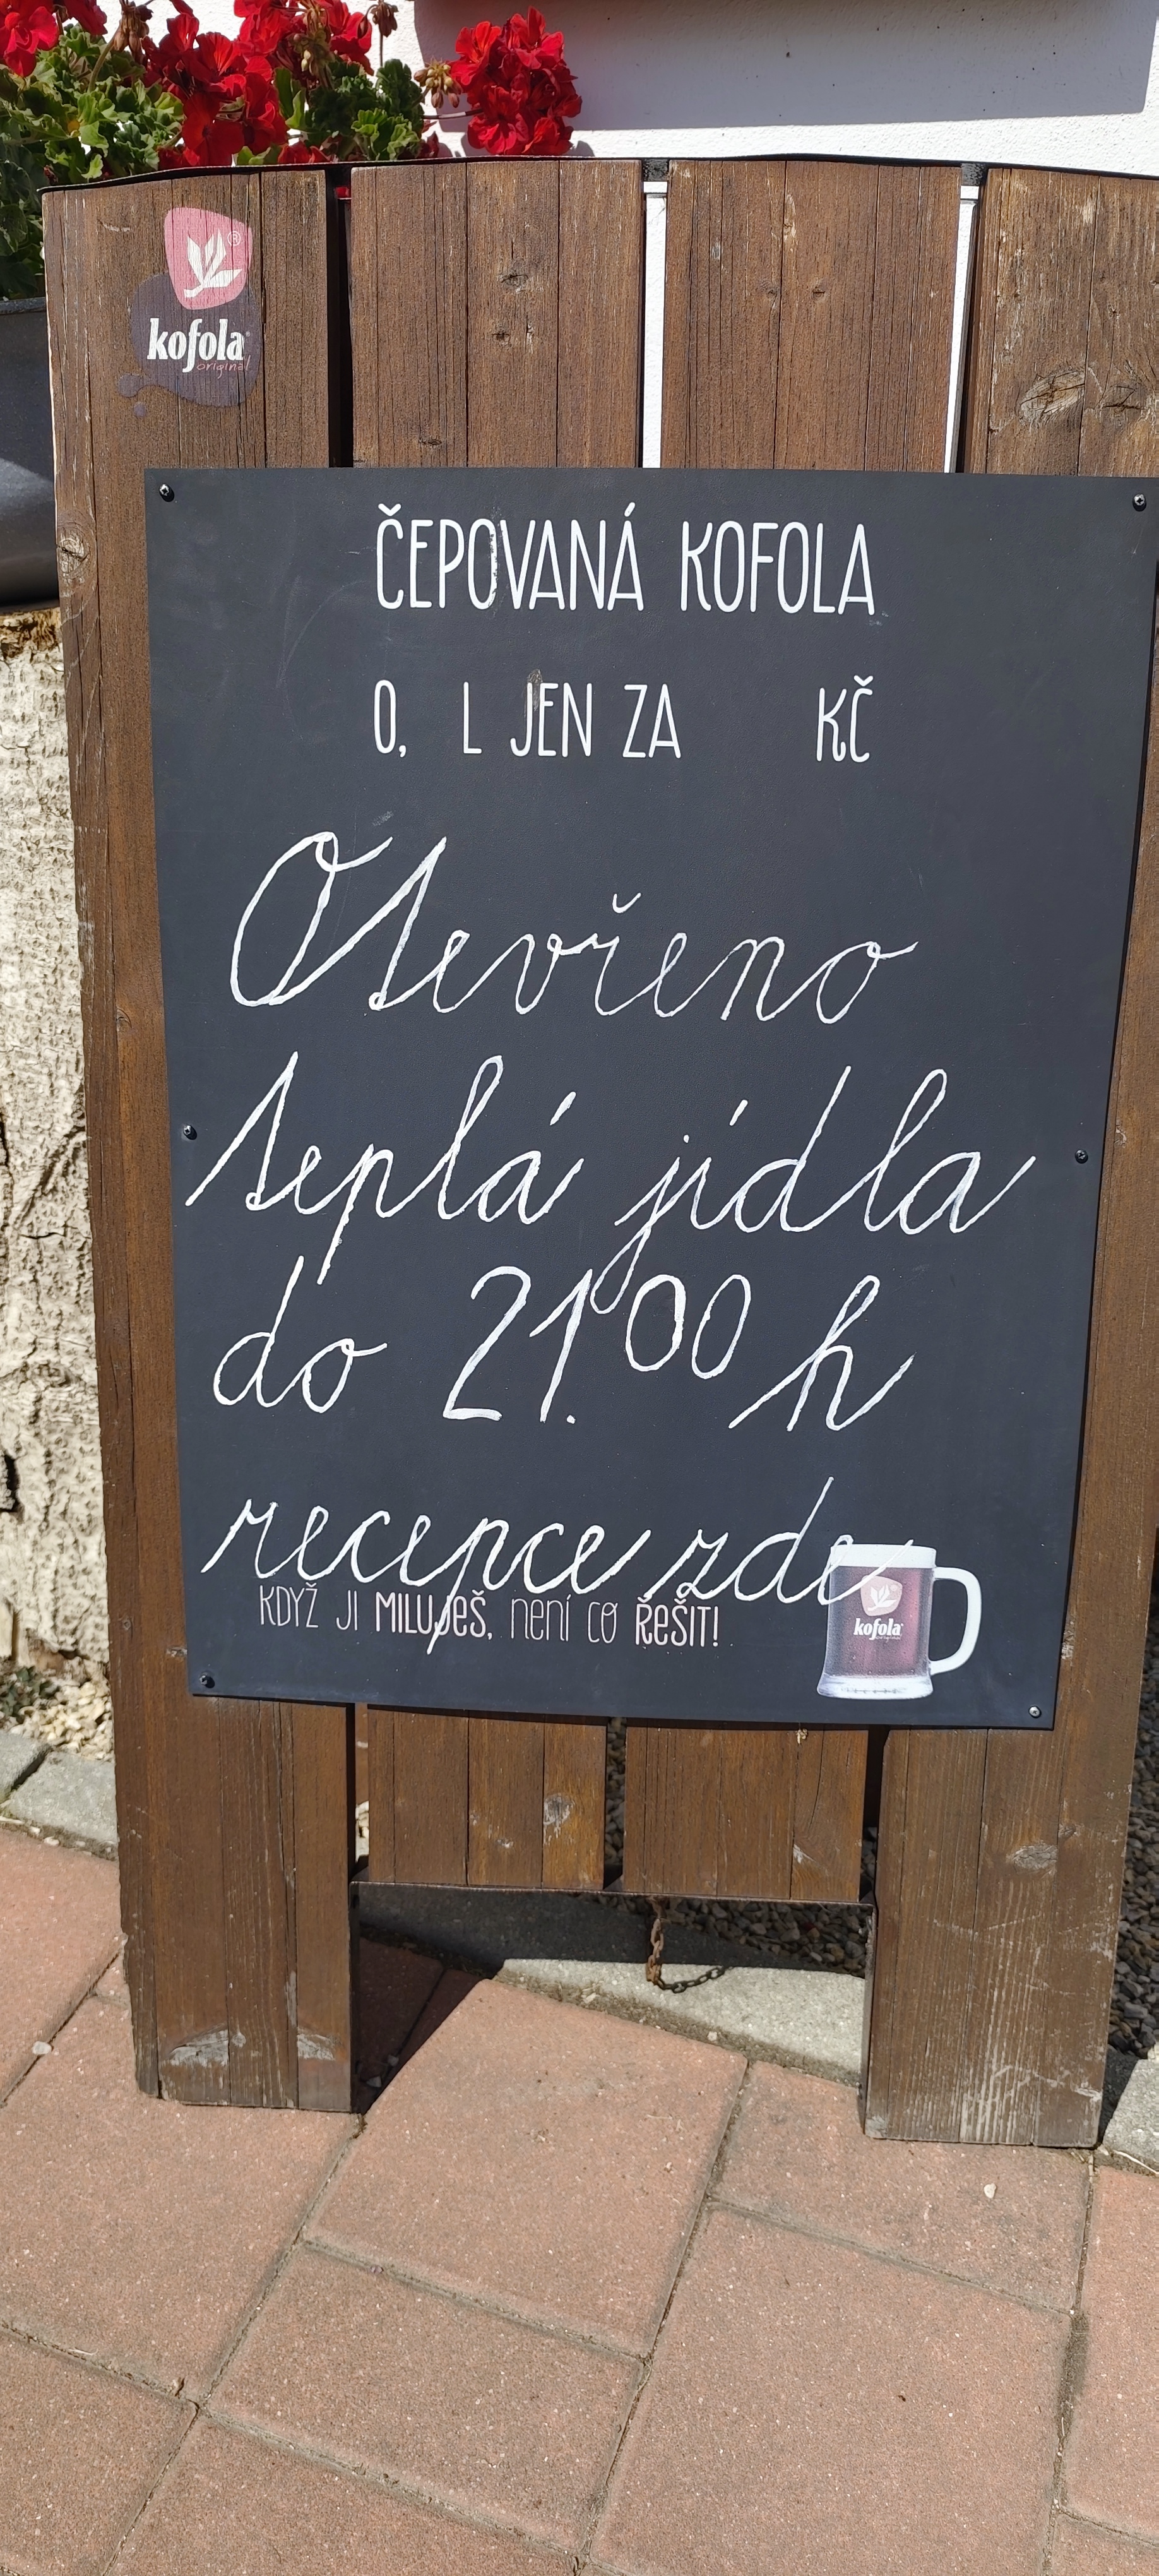 kofola
original
ČEPOVANÁ KOFOLA
0, L JEN ZA KČ
Otevřeno
teplá jídla
do 21.00 h
recepce zde
KDYŽ JI MILUJEŠ, NENÍ CO ŘEŠIT!
kofola